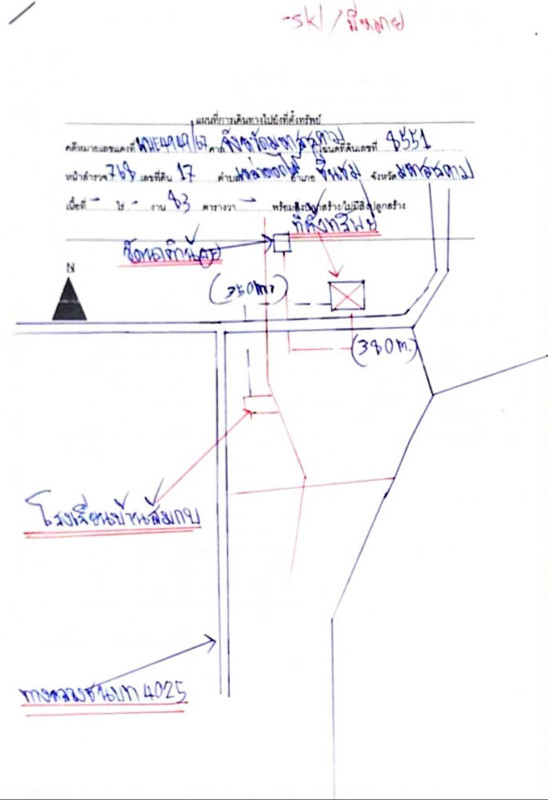 -skl/มีหมาย
แผนที่การเดินทางไปยังที่ตั้งทรัพย์
คดีหมายเลขแดงที่ ศาล จังหวัดมหาสารคาม โฉนดที่ดินเลขที่ 8551
หน้าสำรวจ 768 เลขที่ดิน 17 ตำบล เหล่าดอกไม้ อำเภอ ชื่นชม จังหวัด มหาสารคาม
เนื้อที่ - ไร่ - งาน 83 ตารางวา - พร้อมสิ่งปลูกสร้าง/ไม่มีสิ่งปลูกสร้าง
ที่ตั้งทรัพย์
N
(350m.)
(380m.)
โรงเรียนบ้านส้มกบ
ทางหลวงชนบท 4025